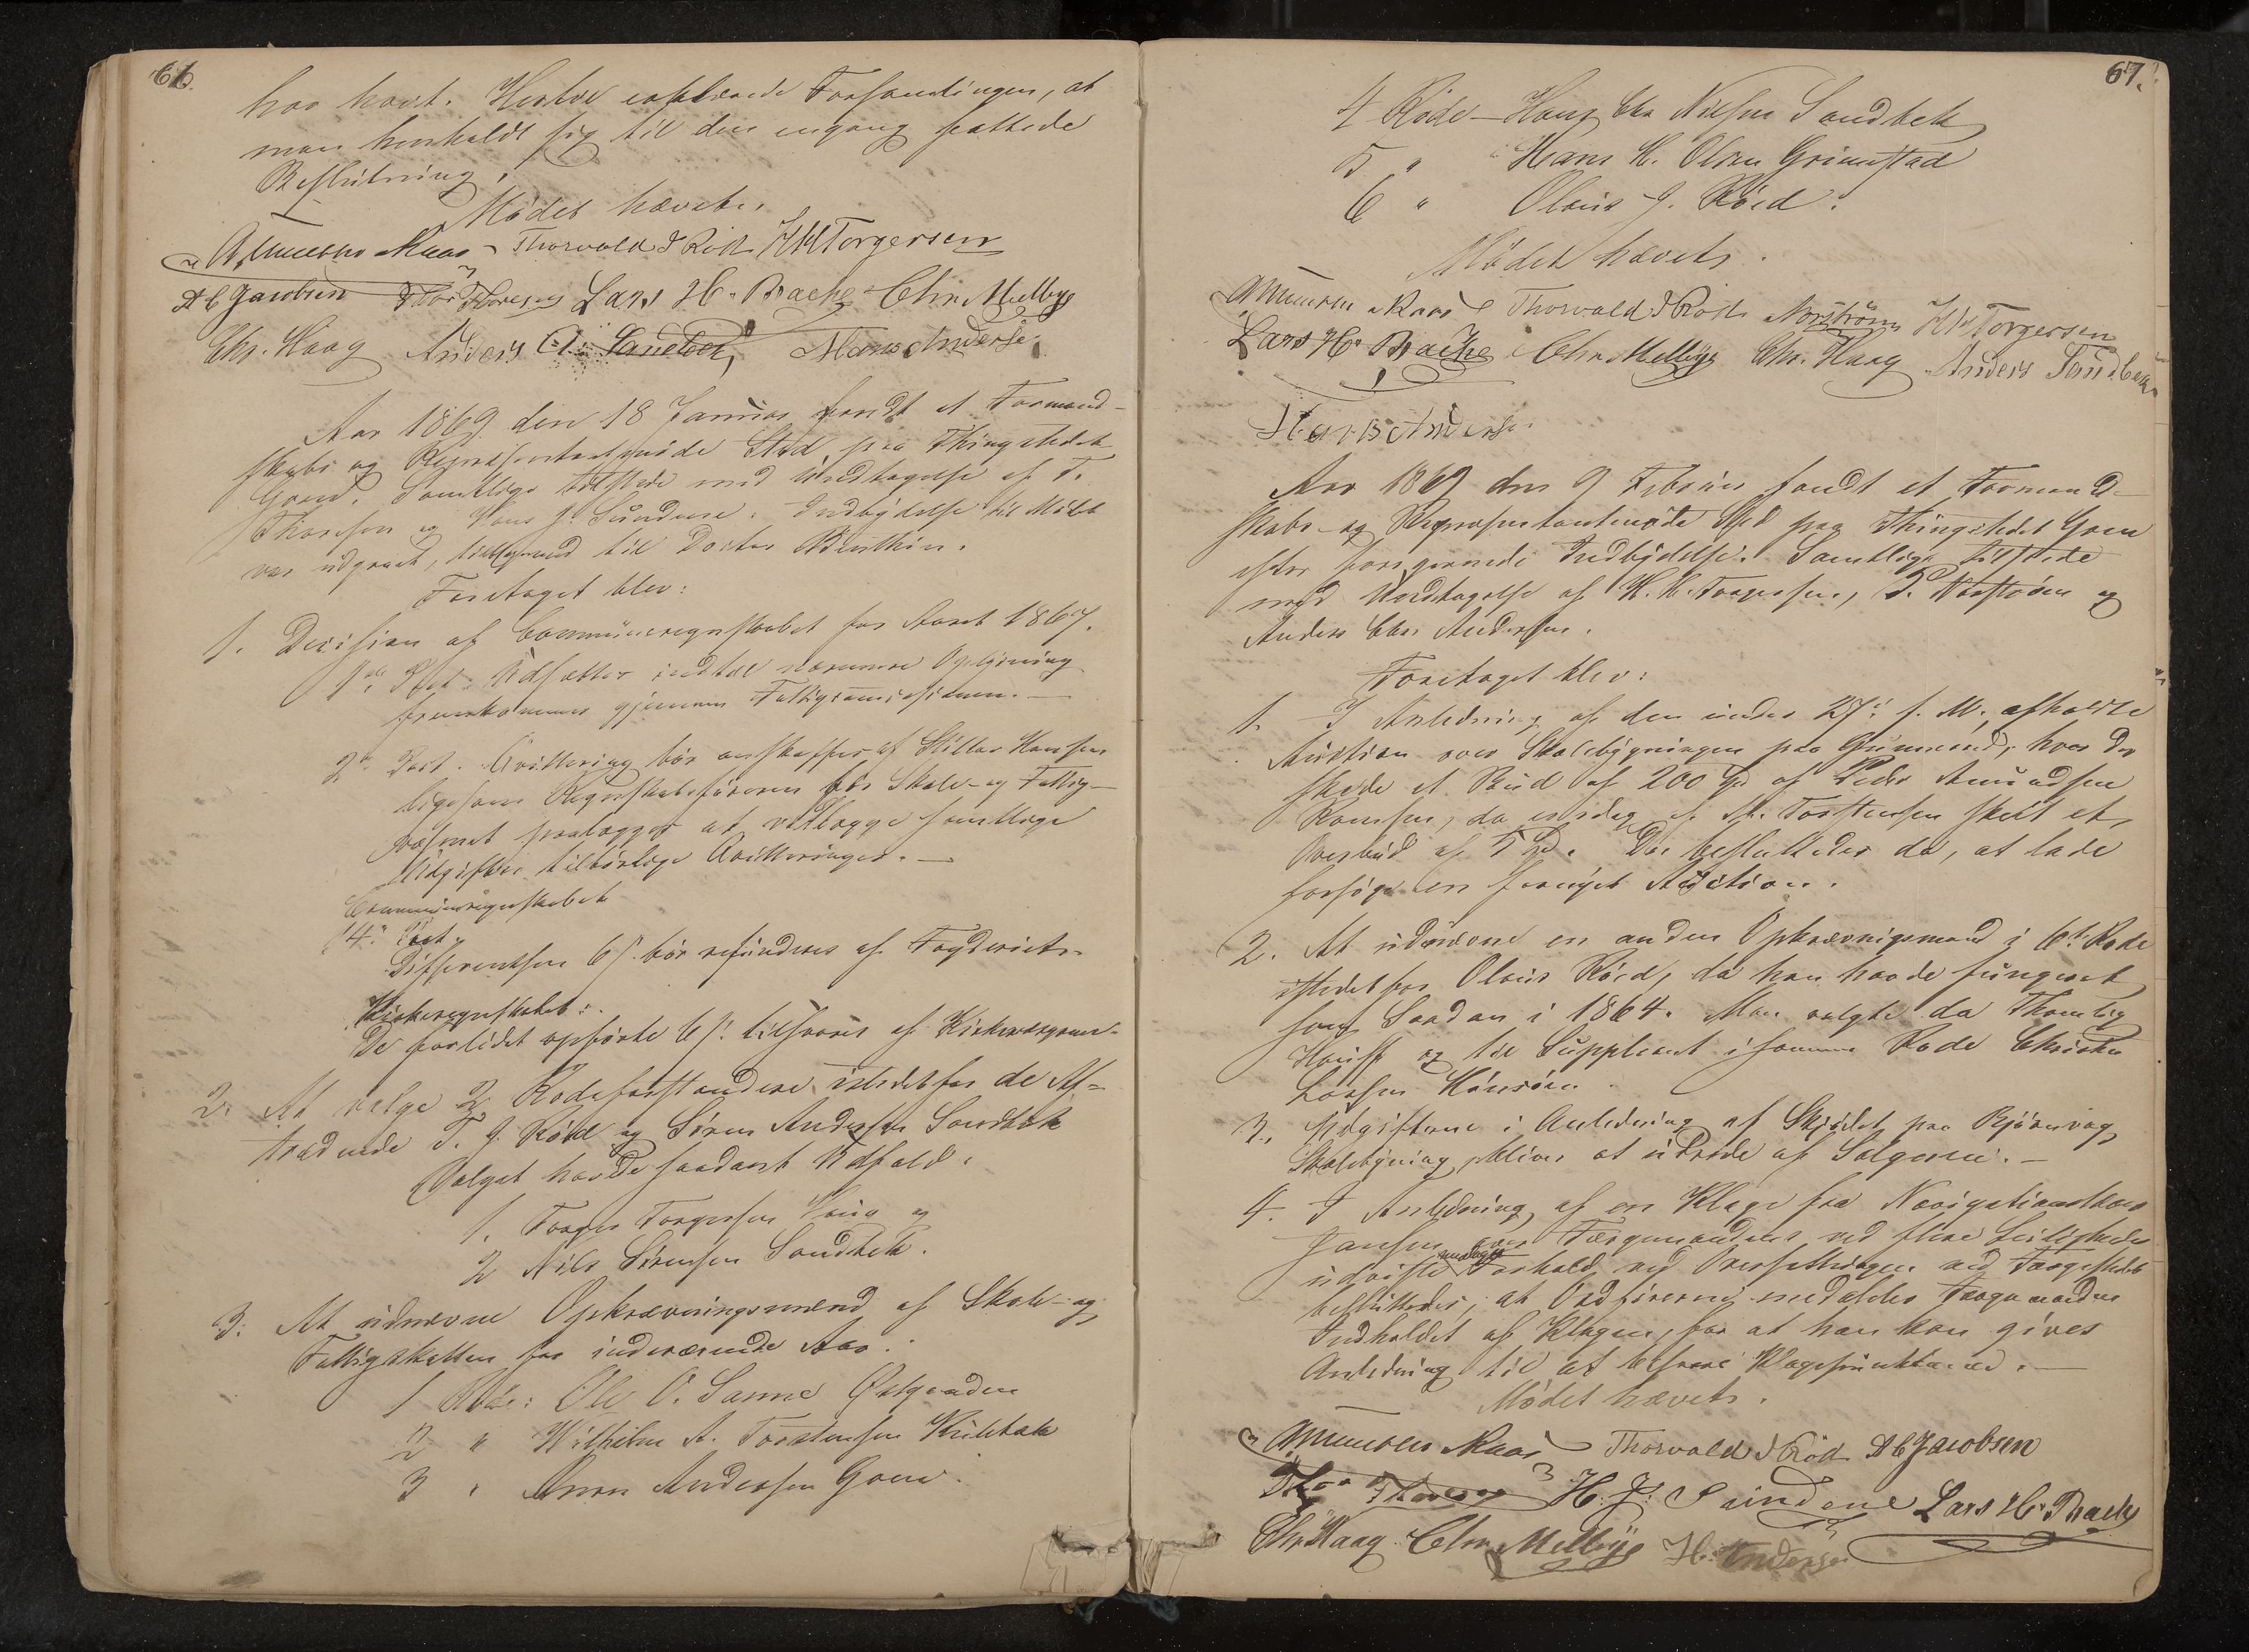 66.
har havt. Hertil erklærede Forsamlingen, at
man henholdt sig til den engang fattede
Beslutning.
Mødet hævet.
Thorvald J Röd H H Torgersen
A C Jacobsen Lars H. Backe Chr. Melbye
Chr. Haag Anders Sandbek Hans Andersen
Aar 1869 den 18 Januar fandt et Formand-
skabs og Repræsentantmøde Sted paa Thingstedet
Grem. Samtlige tilstede med Undtagelse af T.
Thoresen og Hans J. Sundene. Indbydelse til Mödet
var udgaaet, tillige med til Doctor
Foretaget blev:
1. Decision af Communeregnskabet for Aaret 1867.
1ste Post. Udsættes indtil nærmere Oplysning
fremkommer gjennem Fattigcommissionen. —
2den Post. Qvittering bør anskaffes af Hansen
ligesom Regnskabsføreren for Skole- og Fattig-
væsenet paalægges at vedlægge samtlige
Udgifter tilbørlige Qvitteringer. —
Communeregnskabet
14de Post.
Differentsen 6 s. bör refunderes af Fogderiets
Kirkeregnskabet:
De forlidet opførte 6 s. tilsvares af Kirkeværgerne.
2. At vælge 2 Rodeforstandere istedetfor de Af-
trædende T. J. Röd og Sören Andersen Sandbek
Valget havde saadant Udfald.
1. Torger Torgersen Haug og
2 Nils Sörensen Sandbek.
3. At udnævne Opkrævningsmænd af Skole- og
Fattigskatten for indeværende Aar.
1 Rode: Ole O. Sanne
2 " Wilhelm A. Torstensen
3 " Andersen Grem.
67.
4 Rode — Hans Chr Nilsen Sandbek
5 " Hans H. Olsen Grimstad
6 " Olaus J. Röed.
Mödet hævet.
Thorvald J Röd Norström H H Torgersen
Lars H. Backe Chr. Melbye Chr. Haag Anders Sandbek
Hans Andersen
Aar 1869 den 9 Februar fandt et Formand-
skabs- og Repræsentantmöde Sted paa Thingstedet Grem
efter foregaaende Indbydelse. Samtlige tilstede
med Undtagelse af H. H. Torgersen, P. Norström og
Anders Chr. Andersen.
Foretaget blev:
1. I Anledning af den under 27de f. M. afholdte
Auction over Skolebygningen paa hvor der
skede et Bud af 200 Spd af Peder Amundsen
da er idag af A. Torstensen skeet et
Overbud af 5 Spd. Der besluttedes da, at lade
forsøge en fornyet Auction.
2. At udnævne en anden Opkrævningsmand i 6te Rode
istedetfor Olaus Röed, da han havde fungeret
som Saadan i 1864. Man valgte da Thomas
og til Suppleant i samme Rode Christen
Larsen
3. Udgifterne i Anledning af Skjödet paa Björnevaag
Skolebygning, bliver at udrede af Sælgeren. —
4. I Anledning af en Klage fra Navigationslærer
Jansen over Færgemandens ved flere Leiligheder
udviste Forhold ved Oversætningen ved Færgestedet
besluttedes, at Ordføreren meddeler Færgemanden
Indholdet af Klagen, for at han kan gives
Anledning til at besvare Klagepunkterne. —
Mödet hævet.
Thorvald J Röd A C Jacobsen
Thor Thoresen H. J. Sundene Lars H. Backe
Chr. Haag Chr. Melbye H. Andersen